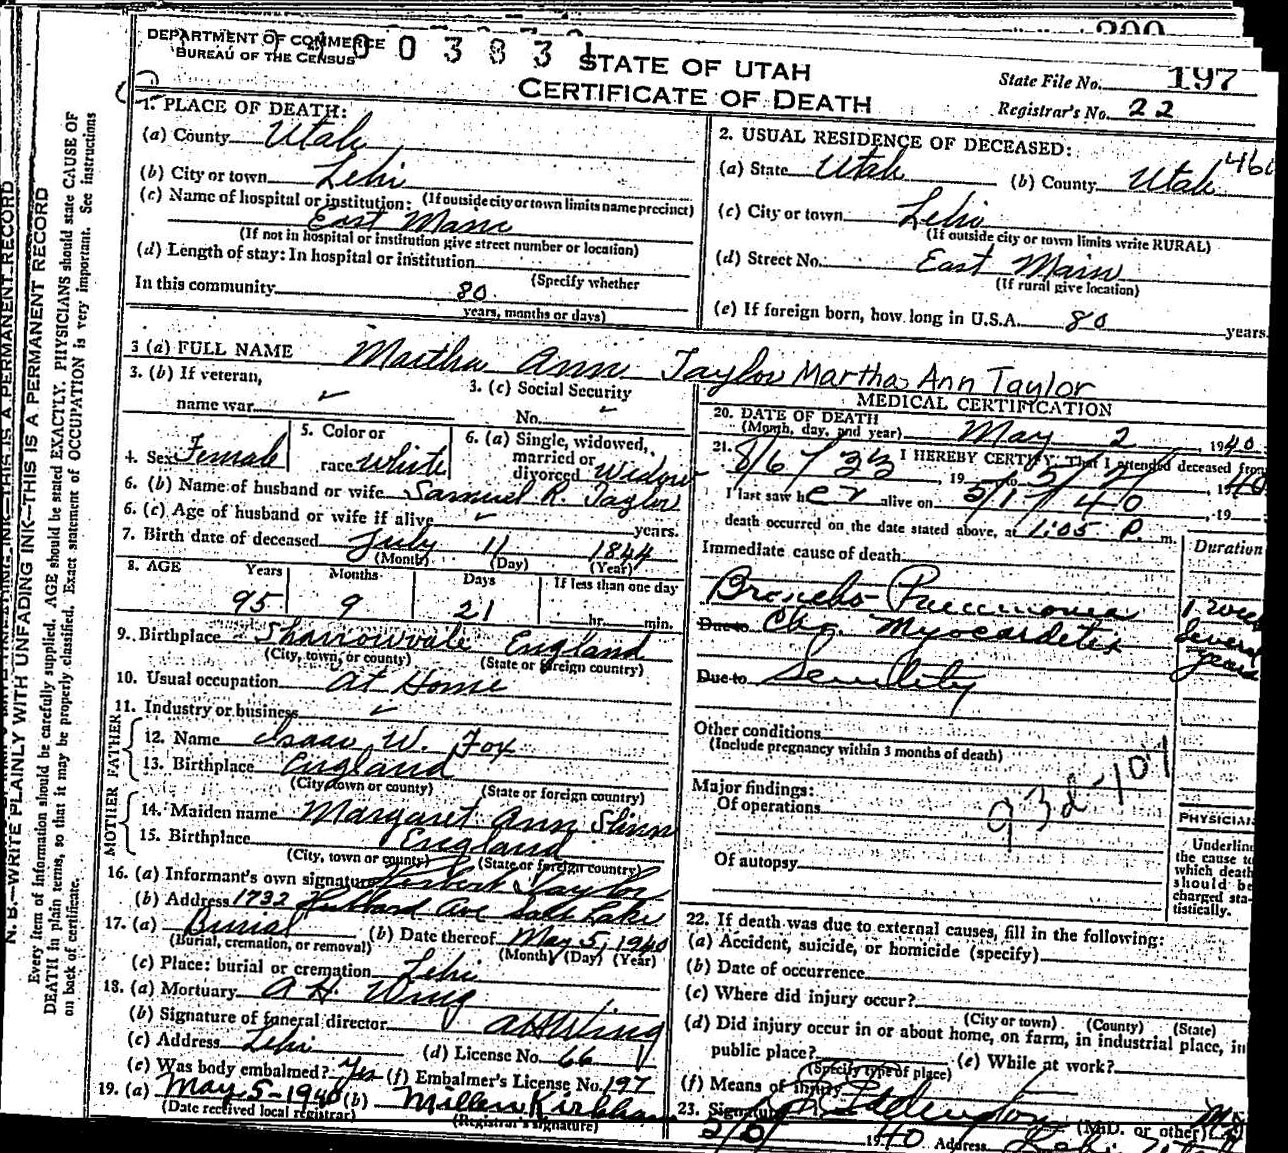 DEPARTMENT OF COMMERCE
BUREAU OF THE CENSUS
0 0 3 8 3 1
STATE OF UTAH
CERTIFICATE OF DEATH
200
State File No. 197
Registrar's No. 22
1. PLACE OF DEATH:
(a) County Utah
(b) City or town Lehi
(If outside city or town limits name precinct)
(c) Name of hospital or institution:
East Main
(If not in hospital or institution give street number or location)
(d) Length of stay: In hospital or institution
(Specify whether
In this community 80
years, months or days)
2. USUAL RESIDENCE OF DECEASED:
(a) State Utah (b) County Utah
(c) City or town Lehi
(If outside city or town limits write RURAL)
(d) Street No. East Main
(If rural give location)
(e) If foreign born, how long in U.S.A. 80 years.
3 (a) FULL NAME Martha Ann Taylor Martha Ann Taylor
3. (b) If veteran,
name war
3. (c) Social Security
No.
4. Sex Female
5. Color or
race White
6. (a) Single, widowed,
married or
divorced Widow
6. (b) Name of husband or wife Samuel R. Taylor
6. (c) Age of husband or wife if alive years.
7. Birth date of deceased July 11 1844
(Month) (Day) (Year)
8. AGE Years Months Days If less than one day
95 9 21 hr. min.
9. Birthplace England
(City, town, or county) (State or foreign country)
10. Usual occupation At Home
11. Industry or business
FATHER
12. Name Isaac W. Fox
13. Birthplace England
(City town or county) (State or foreign country)
MOTHER
14. Maiden name Margaret Ann Shinn
15. Birthplace England
(City, town or county) (State or foreign country)
16. (a) Informant's own signature Herbert Taylor
(b) Address 1732 Hubbard Ave Salt Lake
17. (a) Burial (b) Date thereof May 5, 1940
(Burial, cremation, or removal) (Month) (Day) (Year)
(c) Place: burial or cremation Lehi
18. (a) Mortuary A H Wing
(b) Signature of funeral director A H Wing
(c) Address Lehi (d) License No. 66
(e) Was body embalmed? Yes (f) Embalmer's License No. 197
19. (a) May 5-1940 (b) Kirkham
(Date received local registrar) (Registrar's signature)
MEDICAL CERTIFICATION
20. DATE OF DEATH
(Month, day, and year) May 2 1940
21. I HEREBY CERTIFY, That I attended deceased from
8/6/33, 19 to 5/2/, 1940
I last saw her alive on 5/1/40, 19
death occurred on the date stated above, at 1:05 P. m.
Immediate cause of death Duration
Broncho Pneumonia 1 week
Due to Chr. Myocardetis Several years
Due to Senility
Other conditions
(Include pregnancy within 3 months of death)
93d-107
Major findings:
Of operations
Of autopsy
PHYSICIAN
Underline
the cause to
which death
should be
charged sta-
tistically.
22. If death was due to external causes, fill in the following:
(a) Accident, suicide, or homicide (specify)
(b) Date of occurrence
(c) Where did injury occur?
(City or town) (County) (State)
(d) Did injury occur in or about home, on farm, in industrial place, in
public place? (e) While at work?
(Specify type of place)
(f) Means of injury
23. Signature Eddington (M.D. or other) M.D.
1940 Address Lehi, Utah
N. B.—WRITE PLAINLY WITH UNFADING INK—THIS IS A PERMANENT RECORD
Every item of information should be carefully supplied. AGE should be stated EXACTLY. PHYSICIANS should state CAUSE OF
DEATH in plain terms, so that it may be properly classified. Exact statement of OCCUPATION is very important. See instructions
on back of certificate.